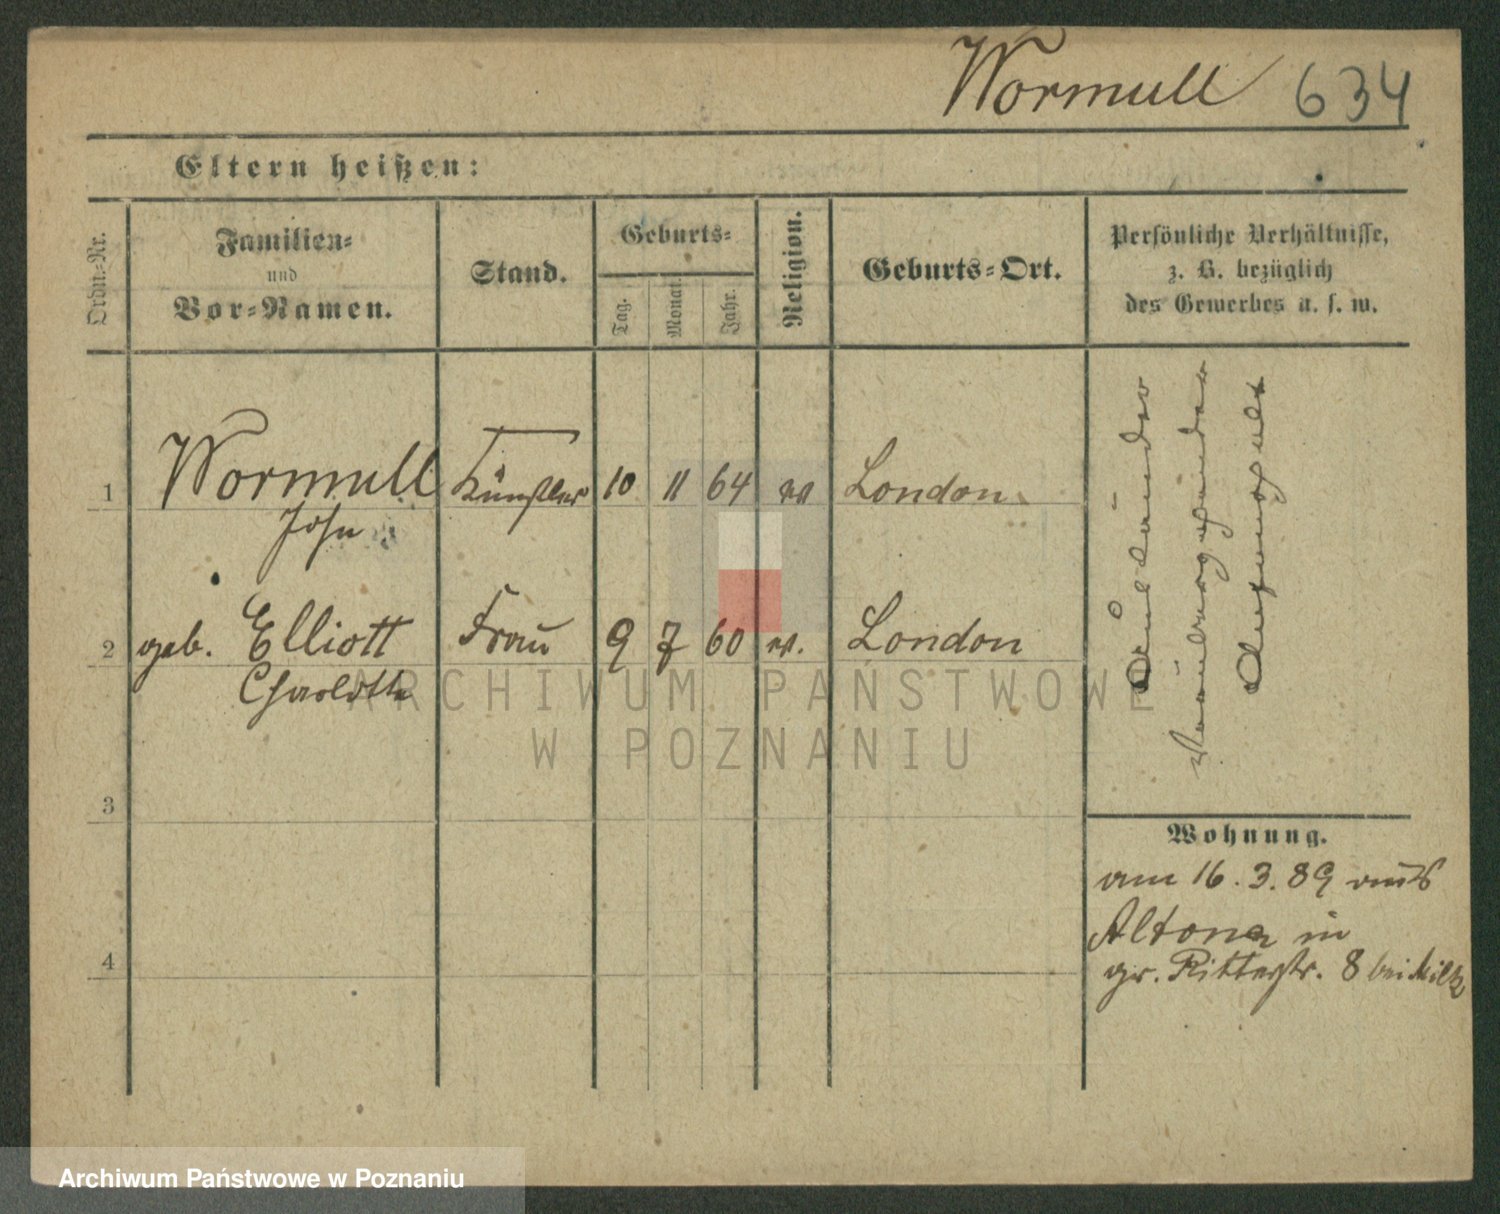 Wormull 634
Eltern heißen:
Ordn-Nr.
Familien-
und
Vor-Namen.
Stand.
Geburts-
Tag.
Monat.
Jahr.
Religion.
Geburts-Ort.
Persönliche Verhältnisse,
z. B. bezüglich
des Gewerbes u. s. w.
1 Wormull Künstler 10 11 64 London
John
2 geb. Elliott Frau 9 7 60 London
Charlotte
3
4
Ausländer
Wohnung.
am 16. 3. 89 aus
Altona in
gr. Ritterstr. 8 bei
ARCHIWUM PAŃSTWOWE
W POZNANIU
Archiwum Państwowe w Poznaniu